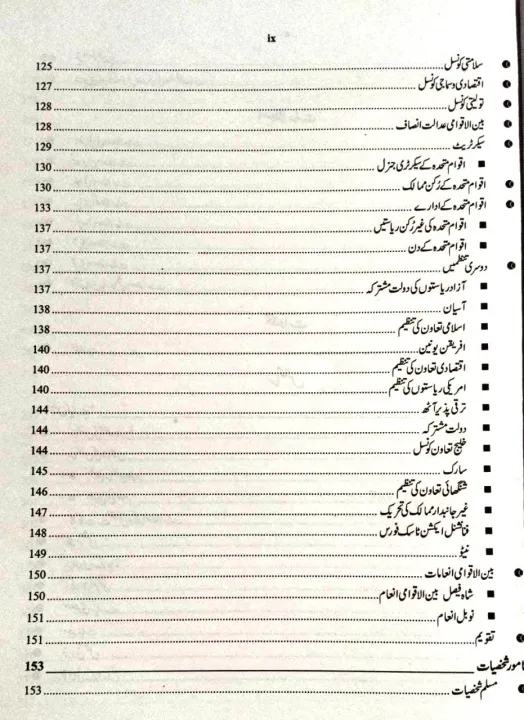 ix
سلامتی کونسل 125
اقتصادی و سماجی کونسل 127
تولیتی کونسل 128
بین الاقوامی عدالت انصاف 128
سیکرٹریٹ 129
اقوام متحدہ کے سیکرٹری جنرل 130
اقوام متحدہ کے رُکن ممالک 130
اقوام متحدہ کے ادارے 133
اقوام متحدہ کی غیر رُکن ریاستیں 137
اقوام متحدہ کے دن 137
دوسری تنظیمیں 137
آزاد ریاستوں کی دولت مشترکہ 137
آسیان 138
اسلامی تعاون کی تنظیم 138
افریقن یونین 140
اقتصادی تعاون کی تنظیم 140
امریکی ریاستوں کی تنظیم 140
ترقی پذیر آٹھ 144
دولت مشترکہ 144
خلیج تعاون کونسل 144
سارک 145
شنگھائی تعاون کی تنظیم 146
غیر جانبدار ممالک کی تحریک 147
فنانشل ایکشن ٹاسک فورس 148
نیٹو 149
بین الاقوامی انعامات 150
شاہ فیصل بین الاقوامی انعام 150
نوبل انعام 151
تقویم 151
نامور شخصیات 153
مسلم شخصیات 153